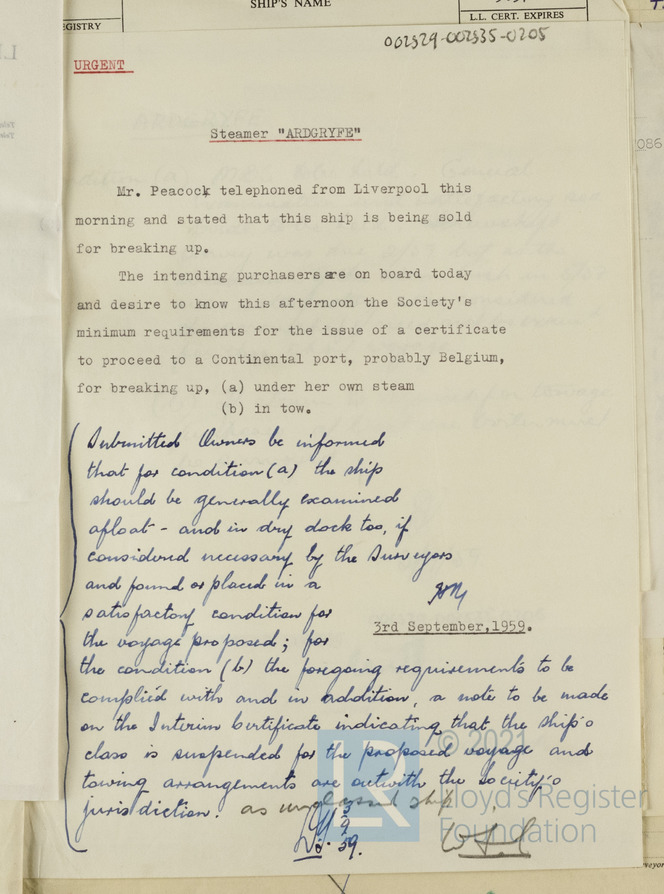 SHIP'S NAME
EGISTRY
L.L. CERT. EXPIRES
002329-002335-0205
URGENT
Steamer "ARDGRYFE"
Mr. Peacock telephoned from Liverpool this
morning and stated that this ship is being sold
for breaking up.
The intending purchasers are on board today
and desire to know this afternoon the Society's
minimum requirements for the issue of a certificate
to proceed to a Continental port, probably Belgium,
for breaking up, (a) under her own steam
(b) in tow.
Submitted Owners be informed
that for condition (a) the ship
should be generally examined
afloat - and in dry dock too, if
considered necessary by the Surveyors
and found or placed in a
satisfactory condition for
3rd September, 1959.
the voyage proposed; for
the condition (b) the foregoing requirements to be
complied with and in addition, a note to be made
on the Interim Certificate indicating that the ship's
class is suspended for the proposed voyage and
towing arrangements are outwith the Society's
jurisdiction. as unclassed ship
© 2021
Lloyd's Register
Foundation
LR